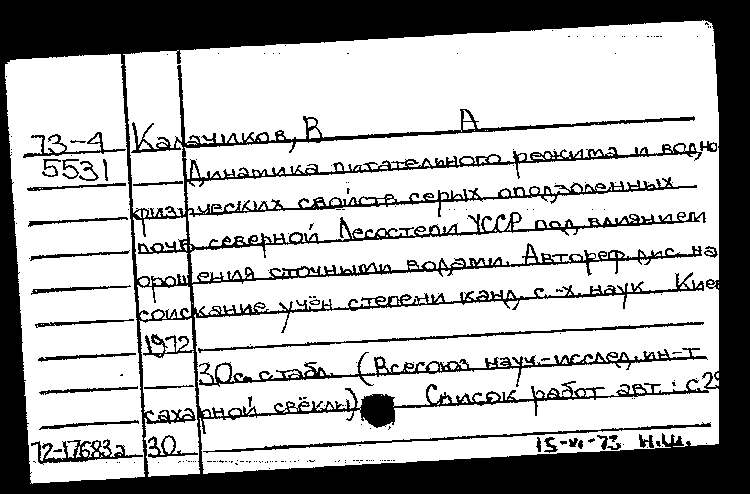 73-4 Калачиков, В А
5531 Динамика питательного режима и водно
физических свойств серых оподзоленных
почв северной Лесостепи УССР под влиянием
орошения сточными водами. Автореф. дис. на
соискание учён степени канд. с.-х. наук Киев
1972
30с. с табл. (Всесоюз науч.-исслед. ин-т
сахарной свёклы) Список работ авт.: с.29
72-17683а 30. 15-VI-73 Н.Ш.